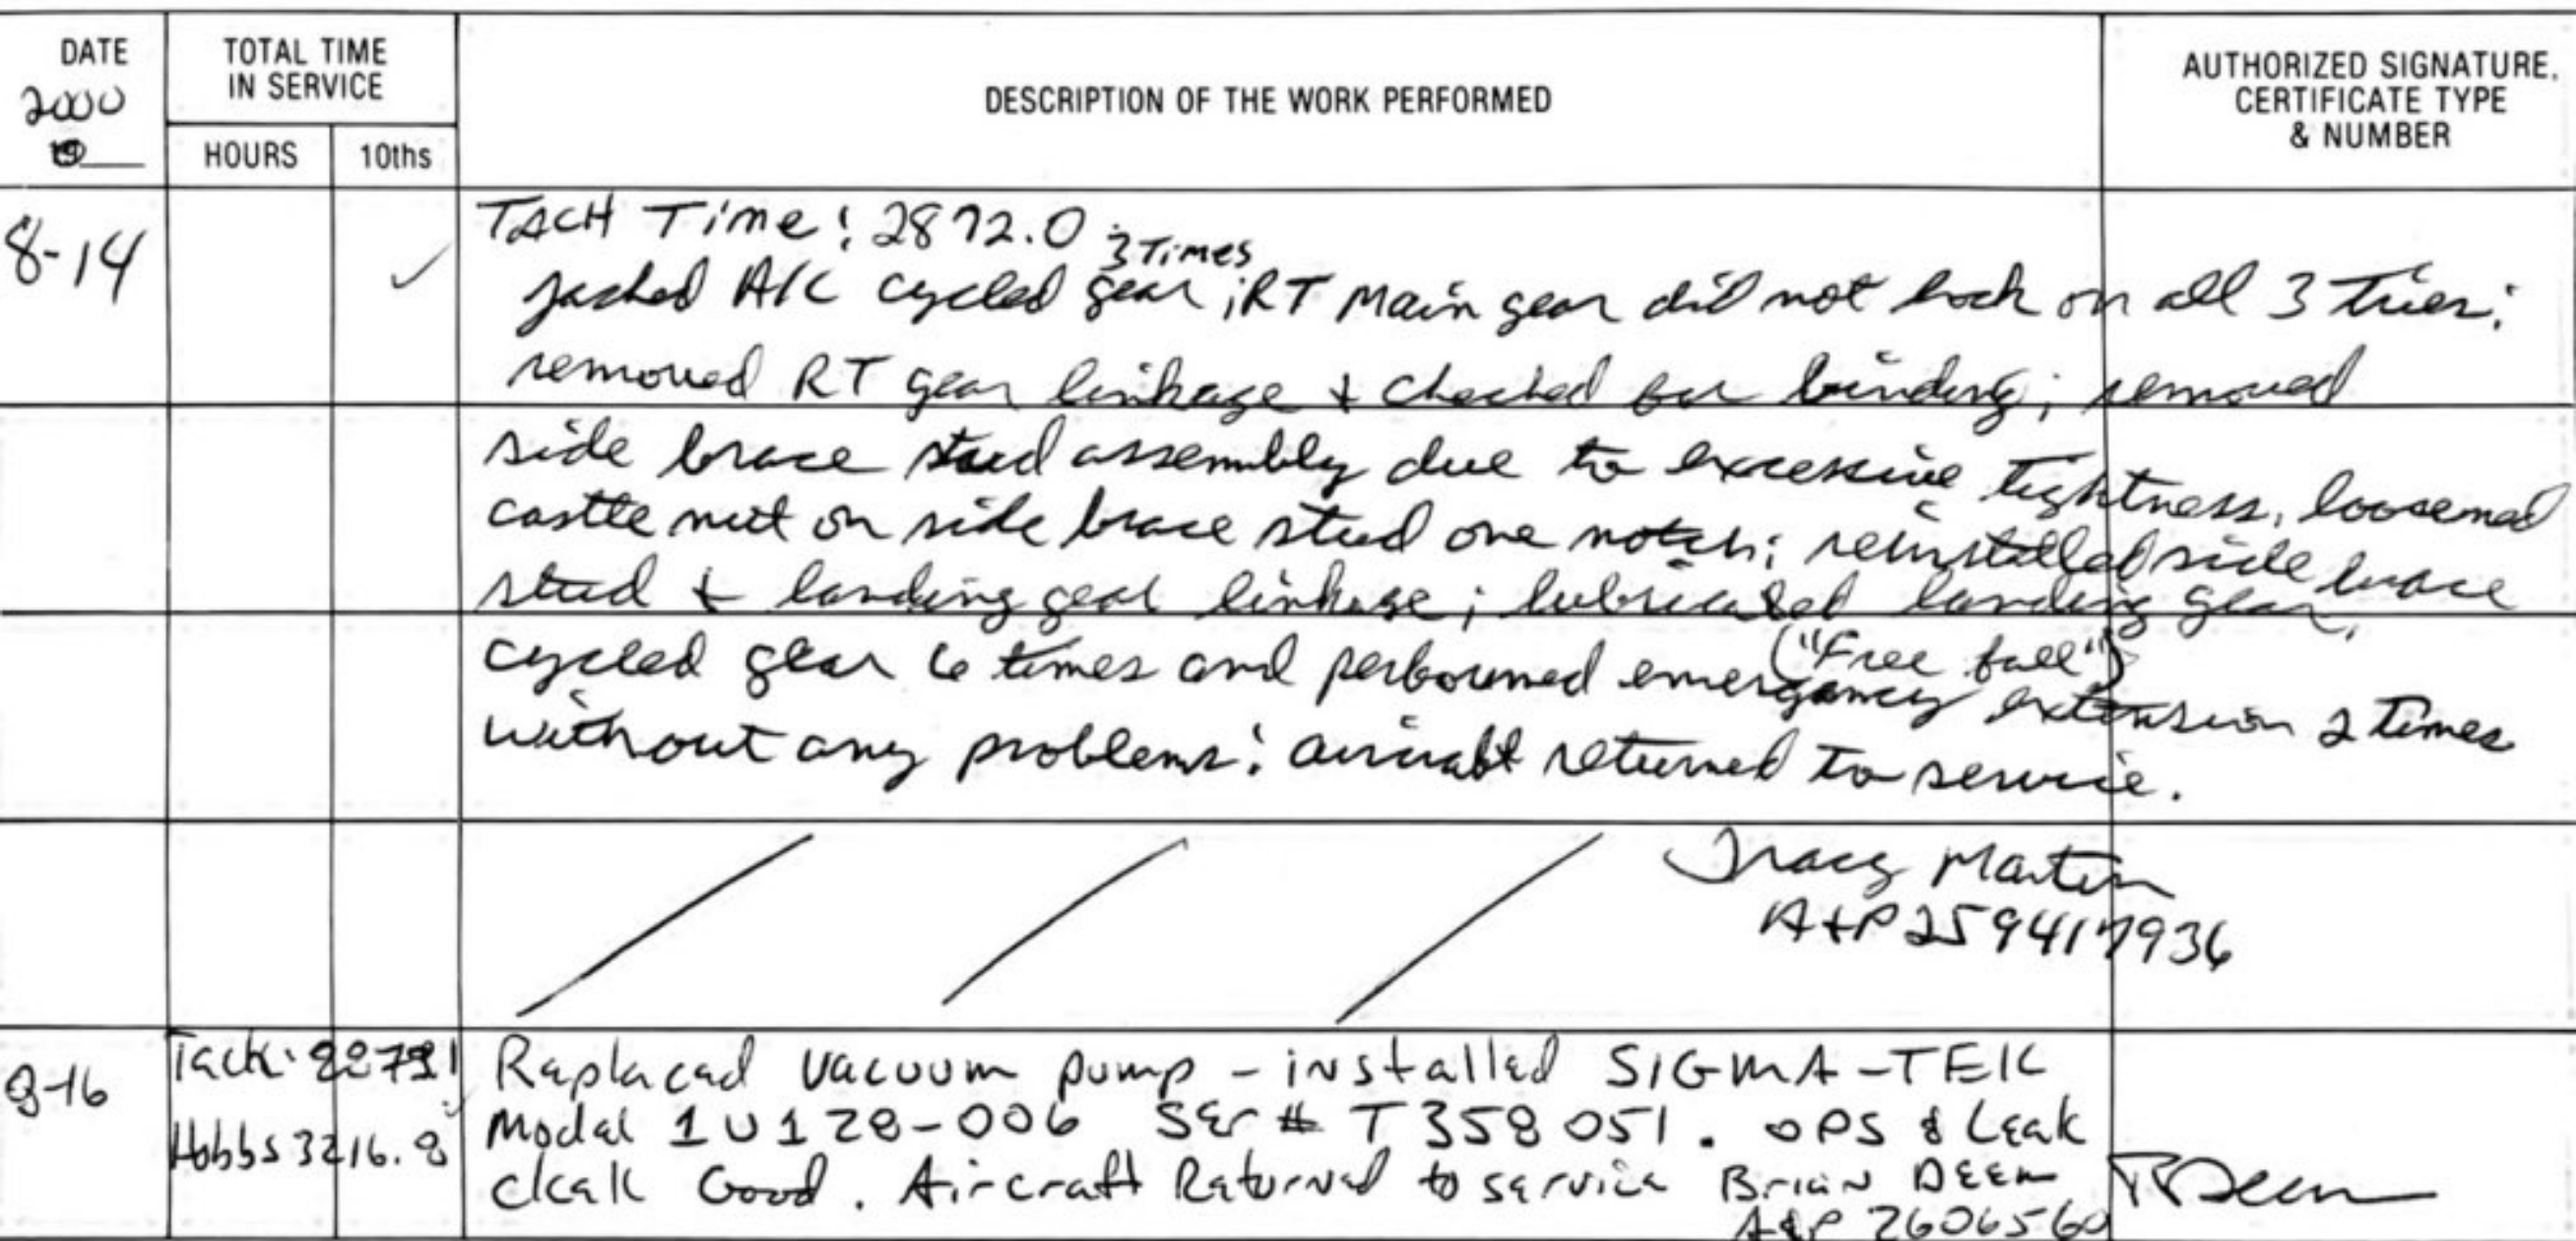 DATE
2000
19
TOTAL TIME
IN SERVICE
HOURS
10ths
DESCRIPTION OF THE WORK PERFORMED
AUTHORIZED SIGNATURE,
CERTIFICATE TYPE
& NUMBER
8-14
TACH Time: 2872.0
3 Times
Jacked A/C cycled gear; RT Main gear did not lock on all 3 tries;
removed RT gear linkage + checked for binding; removed
side brace stud assembly due to excessive tightness, loosened
castle nut on side brace stud one notch; reinstalled side brace
stud + landing gear linkage; lubricated landing gear,
("Free fall")
cycled gear 6 times and performed emergency extension 2 times
without any problems; aircraft returned to service.
Tracy Martin
A+P 259417936
8-16
Tach:
Hobbs 3216.8
Replaced vacuum pump - installed SIGMA-TEK
Model 1U128-006 Ser # T358051. OPS & Leak
check Good. Aircraft Returned to service Brian DEEM
A&P 2606560
BDeem